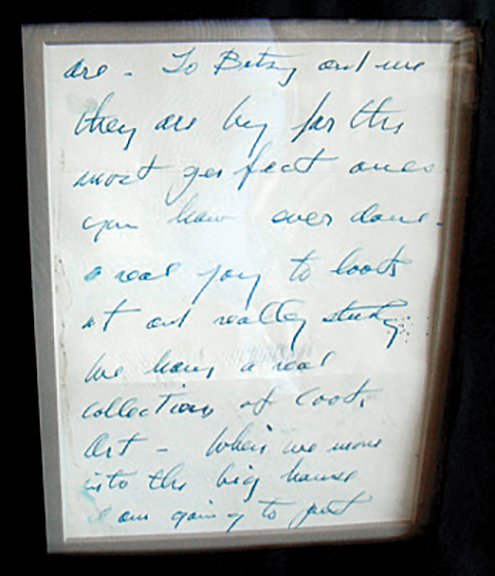 are - To Betsy and me
they are by far the
most perfect ones
you have ever done -
a real joy to look
at and really study
We have a real
collection of Cook
Art - When we move
into the big house
I am going to put